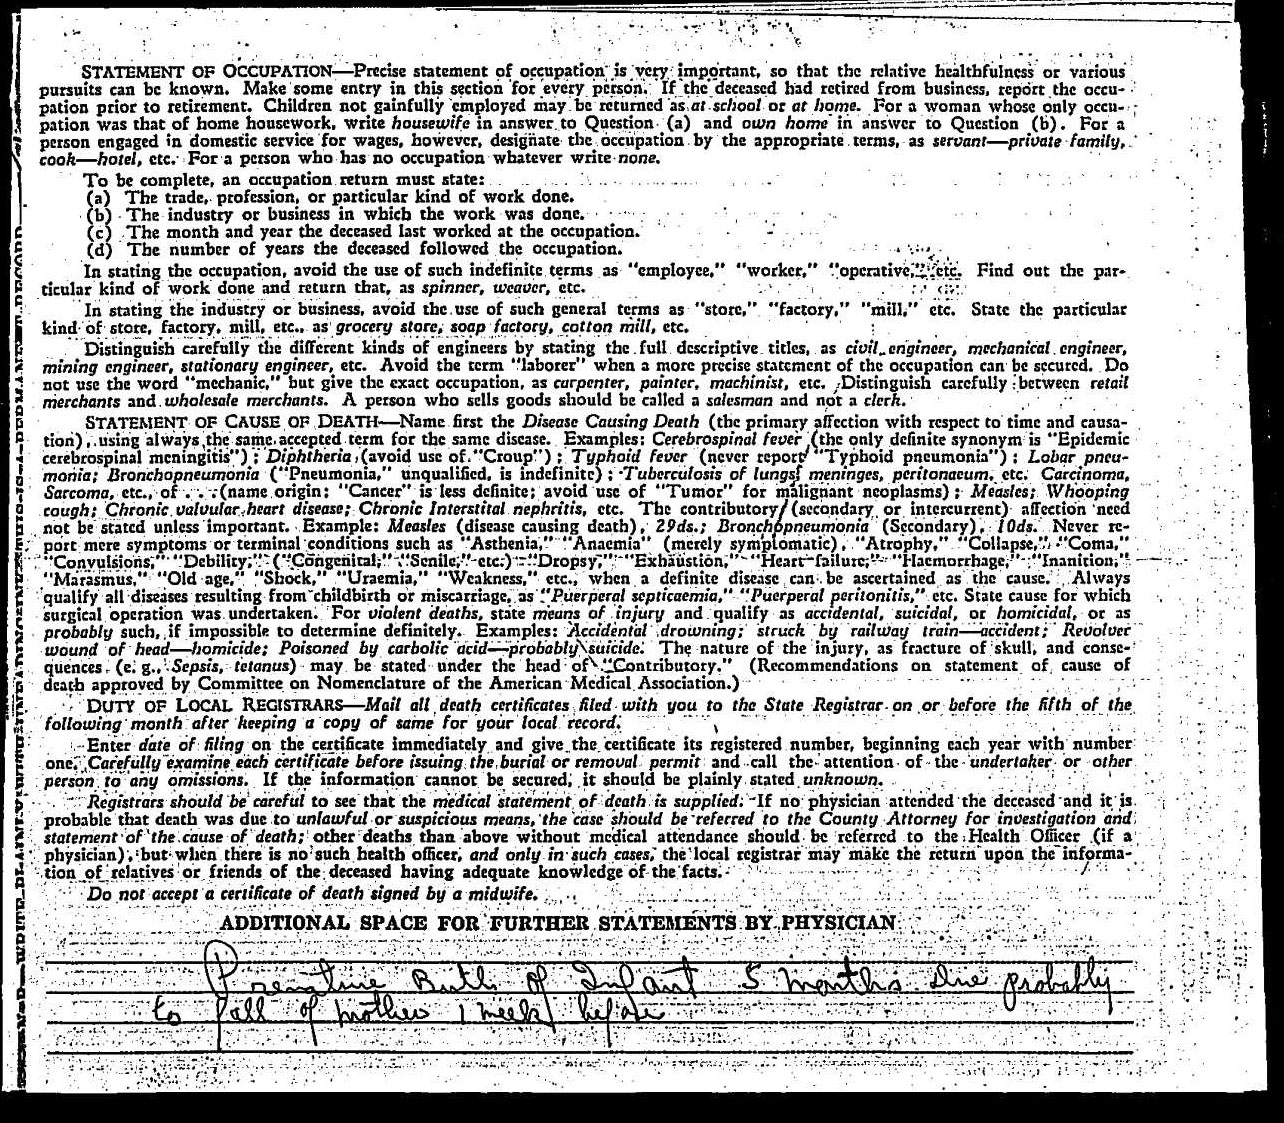 STATEMENT OF OCCUPATION—Precise statement of occupation is very important, so that the relative healthfulness or various
pursuits can be known. Make some entry in this section for every person. If the deceased had retired from business, report the occu-
pation prior to retirement. Children not gainfully employed may be returned as at school or at home. For a woman whose only occu-
pation was that of home housework, write housewife in answer to Question (a) and own home in answer to Question (b). For a
person engaged in domestic service for wages, however, designate the occupation by the appropriate terms, as servant—private family,
cook—hotel, etc. For a person who has no occupation whatever write none.
To be complete, an occupation return must state:
(a) The trade, profession, or particular kind of work done.
(b) The industry or business in which the work was done.
(c) The month and year the deceased last worked at the occupation.
(d) The number of years the deceased followed the occupation.
In stating the occupation, avoid the use of such indefinite terms as "employee," "worker," "operative," etc. Find out the par-
ticular kind of work done and return that, as spinner, weaver, etc.
In stating the industry or business, avoid the use of such general terms as "store," "factory," "mill," etc. State the particular
kind of store, factory, mill, etc., as grocery store, soap factory, cotton mill, etc.
Distinguish carefully the different kinds of engineers by stating the full descriptive titles, as civil engineer, mechanical engineer,
mining engineer, stationary engineer, etc. Avoid the term "laborer" when a more precise statement of the occupation can be secured. Do
not use the word "mechanic," but give the exact occupation, as carpenter, painter, machinist, etc. Distinguish carefully between retail
merchants and wholesale merchants. A person who sells goods should be called a salesman and not a clerk.
STATEMENT OF CAUSE OF DEATH—Name first the Disease Causing Death (the primary affection with respect to time and causa-
tion), using always the same accepted term for the same disease. Examples: Cerebrospinal fever (the only definite synonym is "Epidemic
cerebrospinal meningitis"); Diphtheria (avoid use of "Croup"); Typhoid fever (never report "Typhoid pneumonia"); Lobar pneu-
monia; Bronchopneumonia ("Pneumonia," unqualified, is indefinite); Tuberculosis of lungs, meninges, peritonaeum, etc. Carcinoma,
Sarcoma, etc., of . . . (name origin; "Cancer" is less definite; avoid use of "Tumor" for malignant neoplasms); Measles; Whooping
cough; Chronic valvular heart disease; Chronic Interstital nephritis, etc. The contributory (secondary or intercurrent) affection need
not be stated unless important. Example: Measles (disease causing death), 29ds.; Bronchopneumonia (Secondary), 10ds. Never re-
port mere symptoms or terminal conditions such as "Asthenia," "Anaemia" (merely symptomatic), "Atrophy," "Collapse," "Coma,"
"Convulsions," "Debility," ("Congenital," "Senile," etc.) "Dropsy," "Exhaustion," "Heart failure," "Haemorrhage," "Inanition,"
"Marasmus," "Old age," "Shock," "Uraemia," "Weakness," etc., when a definite disease can be ascertained as the cause. Always
qualify all diseases resulting from childbirth or miscarriage, as "Puerperal septicaemia," "Puerperal peritonitis," etc. State cause for which
surgical operation was undertaken. For violent deaths, state means of injury and qualify as accidental, suicidal, or homicidal, or as
probably such, if impossible to determine definitely. Examples: Accidental drowning; struck by railway train—accident; Revolver
wound of head—homicide; Poisoned by carbolic acid—probably suicide. The nature of the injury, as fracture of skull, and conse-
quences (e. g., Sepsis, tetanus) may be stated under the head of "Contributory." (Recommendations on statement of cause of
death approved by Committee on Nomenclature of the American Medical Association.)
DUTY OF LOCAL REGISTRARS—Mail all death certificates filed with you to the State Registrar on or before the fifth of the
following month after keeping a copy of same for your local record.
Enter date of filing on the certificate immediately and give the certificate its registered number, beginning each year with number
one. Carefully examine each certificate before issuing the burial or removal permit and call the attention of the undertaker or other
person to any omissions. If the information cannot be secured, it should be plainly stated unknown.
Registrars should be careful to see that the medical statement of death is supplied. If no physician attended the deceased and it is
probable that death was due to unlawful or suspicious means, the case should be referred to the County Attorney for investigation and
statement of the cause of death; other deaths than above without medical attendance should be referred to the Health Officer (if a
physician), but when there is no such health officer, and only in such cases, the local registrar may make the return upon the informa-
tion of relatives or friends of the deceased having adequate knowledge of the facts.
Do not accept a certificate of death signed by a midwife.
ADDITIONAL SPACE FOR FURTHER STATEMENTS BY PHYSICIAN
Premature Birth of Infant 5 months due probably
to fall of mother 1 week before